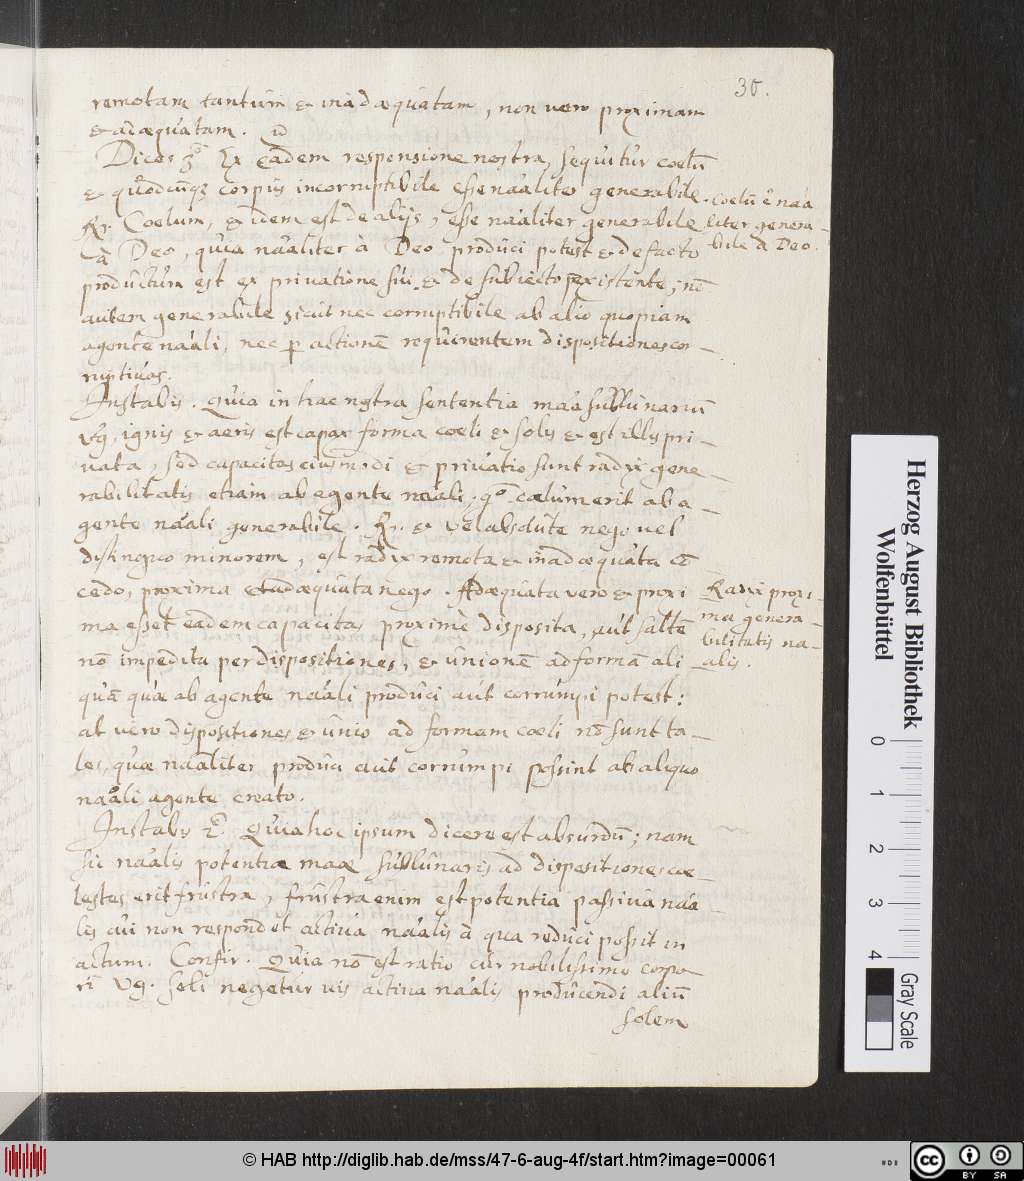 30.
remotam tantùm & inadæquatam, non vero proximam
& adæquatam.
Dices 3º Ex eadem responsione nostra, sequitur coelū
& quodcunqꝫ corpus incorruptibile esse nāāliter generabile.
Rr. Coelum, & idem est de alijs, esse nāāliter generabile
à Deo, quia nāāliter à Deo produci potest & de facto
productum est ex privatione sui & de subiecto existente; nō
autem generabile sicut nec corruptibile ab alio quopiam
agente nāāli, nec ꝑ actionē requirentem dispositiones cor-
ruptivas.
Coelū ē nāā
liter genera-
bile à Deo.
Instabis. Quia in hac nostra sententia māā sublunariū
vg. ignis & aeris est capax forma coeli & solis & est illis pri-
vata, sed capacitas eiusmodi & privatio sunt radix gene-
rabilitatis etiam ab agente nāāli, gº cœlum erit ab a-
gente nāāli generabile. Rr. & vel absolute nego vel
distinguo minorem, est radix remota & inadæquata cō
cedo, proxima & adæquata nego. Adæquata vero & proxi
ma esset eadem capacitas proximè disposita, aut saltē
nō impedita per dispositiones, & unionē ad formā ali
quā quæ ab agente nāāli produci aut corrumpi potest:
at vero dispositiones & unio ad formam coeli nō sunt ta-
les, quæ nāāliter produci aut corrumpi possint ab aliquo
nāāli agente creato.
Radix proxi-
ma genera-
bilitatis na-
alis.
Instabis 2º Quia hoc ipsum dicere est absurdū; nam
sic nāālis potentia māæ sublunaris ad dispositiones cæ-
lestes erit frustra, frustra enim est potentia passiva nāā-
lis cui non respondet activa nāālis à qua reduci possit in
actum. Confir. Quia nō est ratio cur nobilissimo corpo
ri vg. soli negetur vis activa nāālis producendi aliū
solem
Herzog August Bibliothek
Wolfenbüttel
0 1 2 3 4
Gray Scale
© HAB http://diglib.hab.de/mss/47-6-aug-4f/start.htm?image=00061
cc BY SA